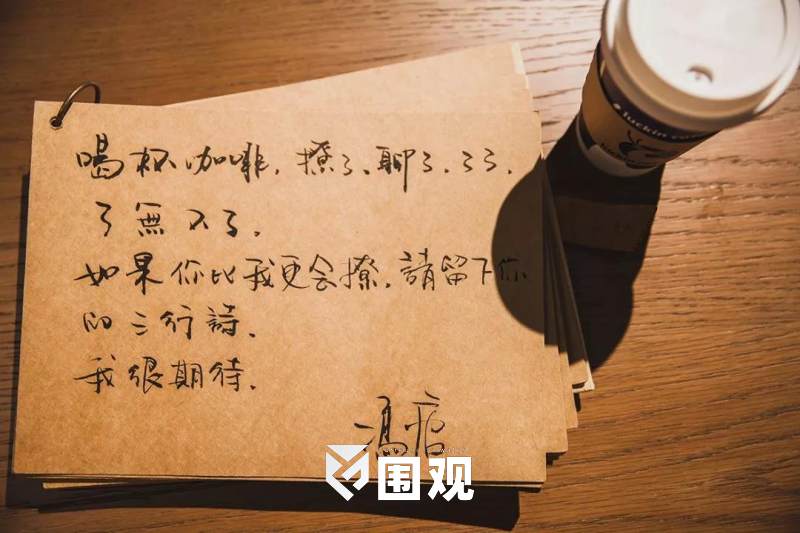 喝杯咖啡，撩了、聊了、了了，
了無不了。
如果你比我更会撩，請留下你
的三行詩，
我很期待。
冯唐
围观
luckin coffee